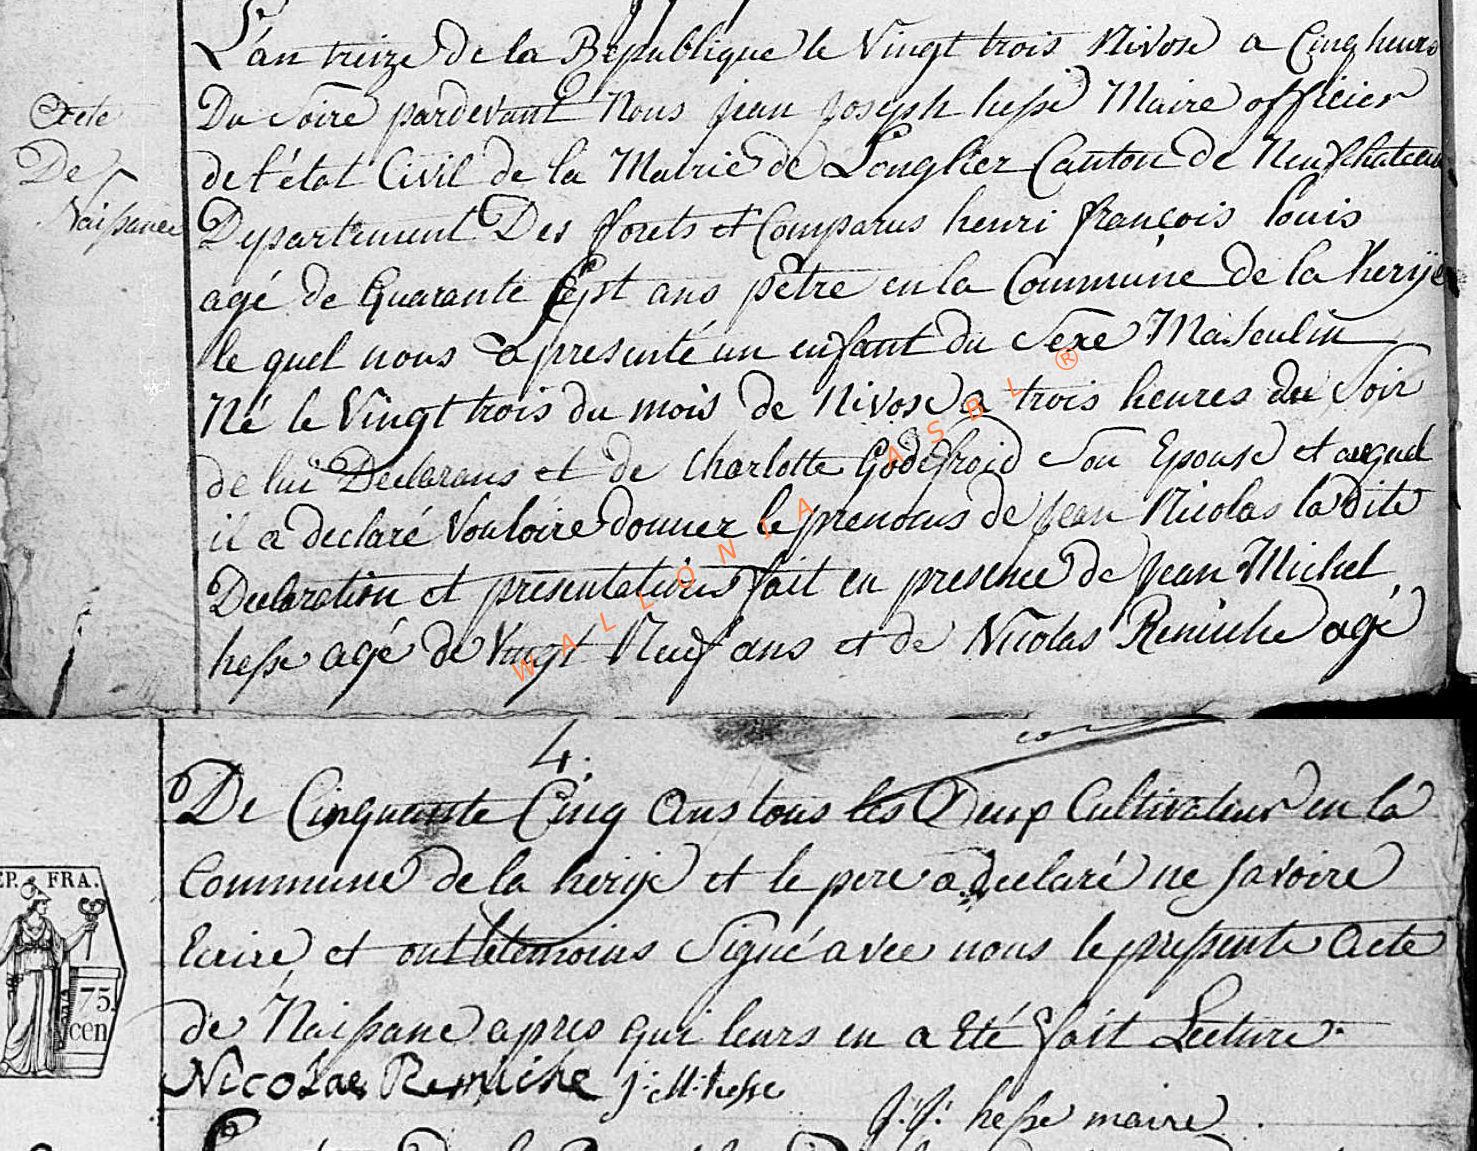 L'an treize de la Republique le Vingt trois Nivose a Cinq heures
Du soire pardevant Nous jean Joseph hesse Maire officier
Acte
De
Naissance
de l'état Civil de la Mairie de Longlier Canton de Neufchateau
Departement Des forets est Comparus henri françois louis
agé de Quarante sept ans pêtre en la Commune de la herije
le quel nous a presenté un enfant du Sexe Masculin
Né le Vingt trois du mois de Nivose a trois heures du Soir
de lui Declarans et de Charlotte Godefroid son Epouse et auquel
il a declaré Vouloire donner le prenoms de Jean Nicolas la dite
Declaration et presentation fait en presence de Jean Michel
hesse agé de Vingt Neuf ans et de Nicolas Remiche agé
WALLONIA ASBL ®
4.
De Cinquante Cinq ans tous les Deux Cultivateur en la
Commune de la herije et le pere a declaré ne savoire
Ecrire et ont le temoins Signé avec nous le pressente acte
de Naissance apres qui leurs en a Eté fait Lecture
Nicolae Remiche J: M: hesse
J: J: hesse maire
EP. FRA.
75.
cen